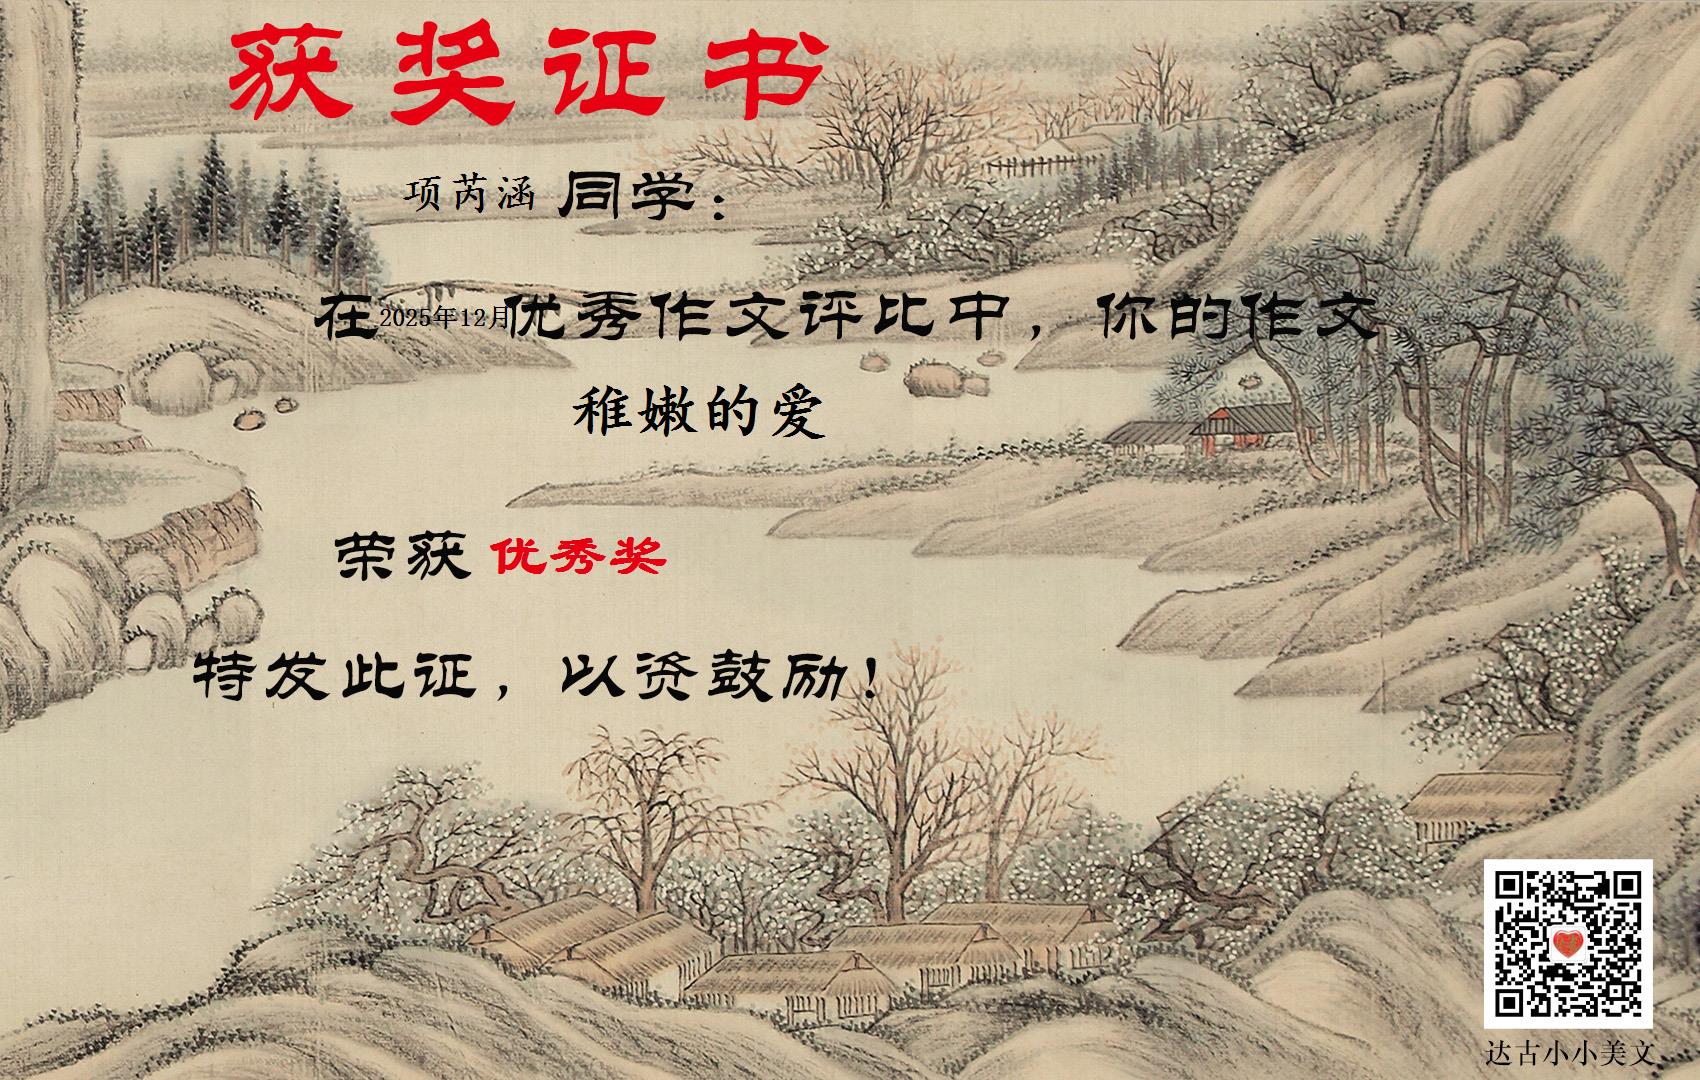 获奖证书
项芮涵 同学：
在2025年12月优秀作文评比中，你的作文
稚嫩的爱
荣获 优秀奖
特发此证，以资鼓励！
达古小小美文